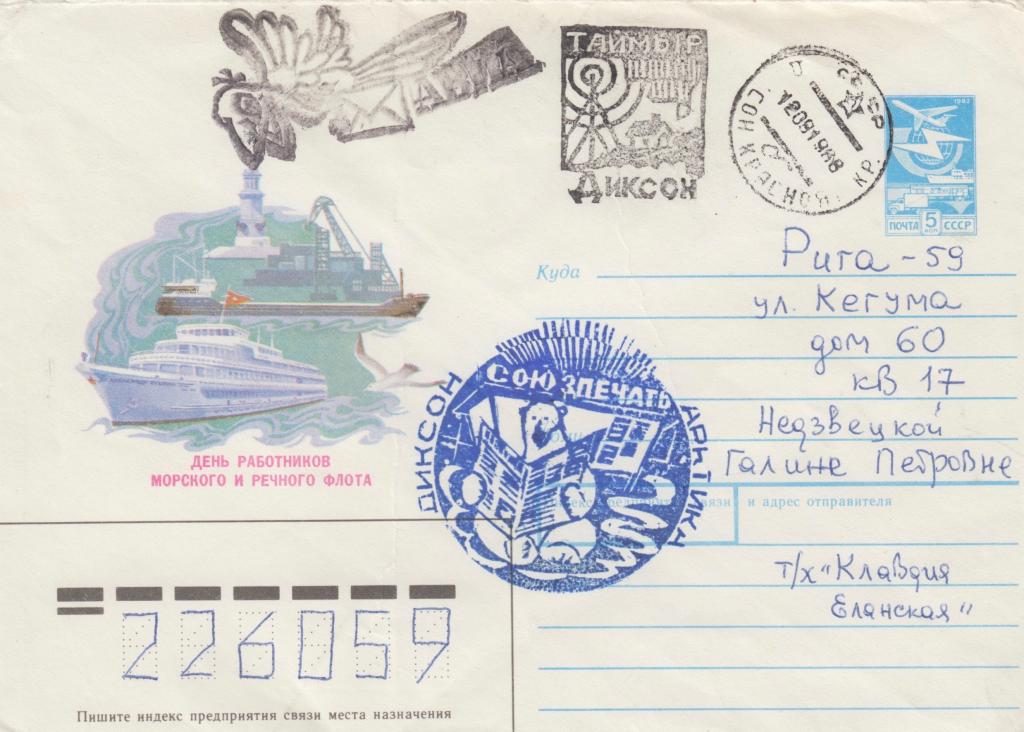 АВИА
ТАЙМЫР
ДИКСОН
СССР
ДИКСОН
КРАСНОЯРСК. КР.
1982
ПОЧТА 5 КОП СССР
Куда Рига-59
ул. Кегума
дом 60
кв 17
Недзвецкой
Галине Петровне
ДЕНЬ РАБОТНИКОВ
МОРСКОГО И РЕЧНОГО ФЛОТА
СОЮЗПЕЧАТЬ
ДИКСОН АРКТИКА
связи и адрес отправителя
т/х "Клавдия
Еланская"
226059
Пишите индекс предприятия связи места назначения